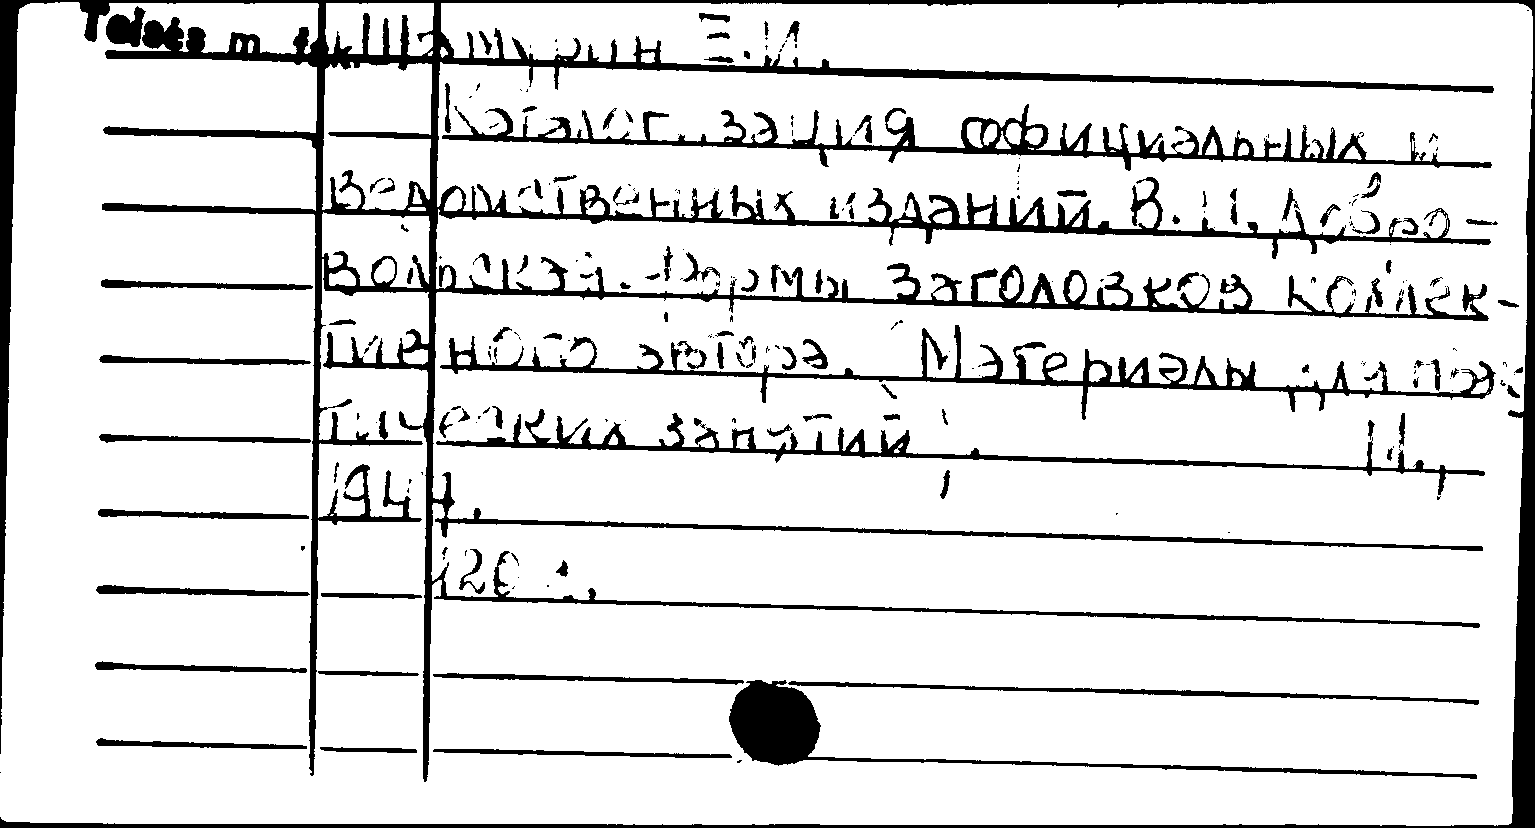 Teisės m. fak. Шамурин Е.И.
Каталогизация официальных и
ведомственных изданий. В.Н. Добро-
вольская. Формы заголовков коллек-
тивного автора. Материалы для прак-
тических занятий. М.,
1944.
120 с.